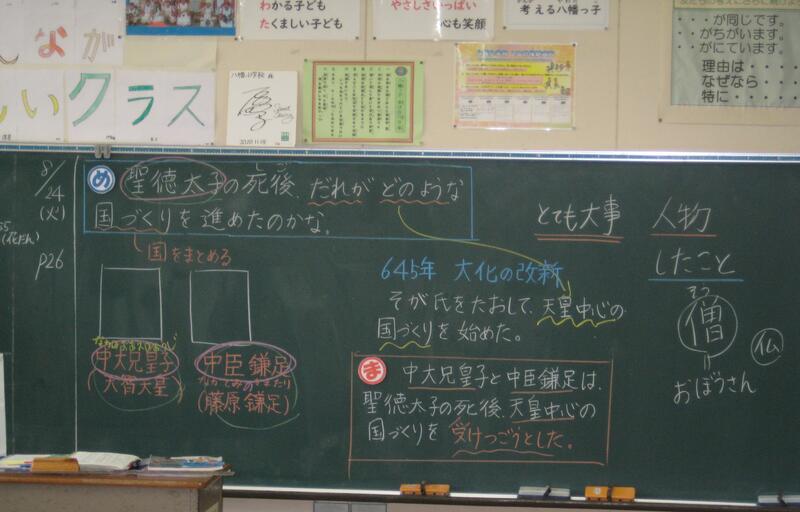 わかる子ども
たくましい子ども
やさしさいっぱい
心も笑顔
考える八幡っ子
・・が同じです。
・・がちがいます。
・・がにています。
理由は・・・・・
なぜなら・・・・
特に・・・・・・
しいクラス
8/24
(火)
P26
め 聖徳太子の死後、だれがどのような
国づくりを進めたのかな。
国をまとめる
中大兄皇子
(天智天皇)
中臣鎌足
(藤原鎌足)
645年 大化の改新
そが氏をたおして、天皇中心の
国づくりを始めた。
ま 中大兄皇子と中臣鎌足は、
聖徳太子の死後、天皇中心の
国づくりを受けつごうとした。
とても大事 人物
したこと
そう
僧
仏
おぼうさん